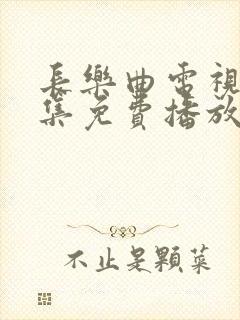 長樂曲電視
集免費播放
不止是顆菜